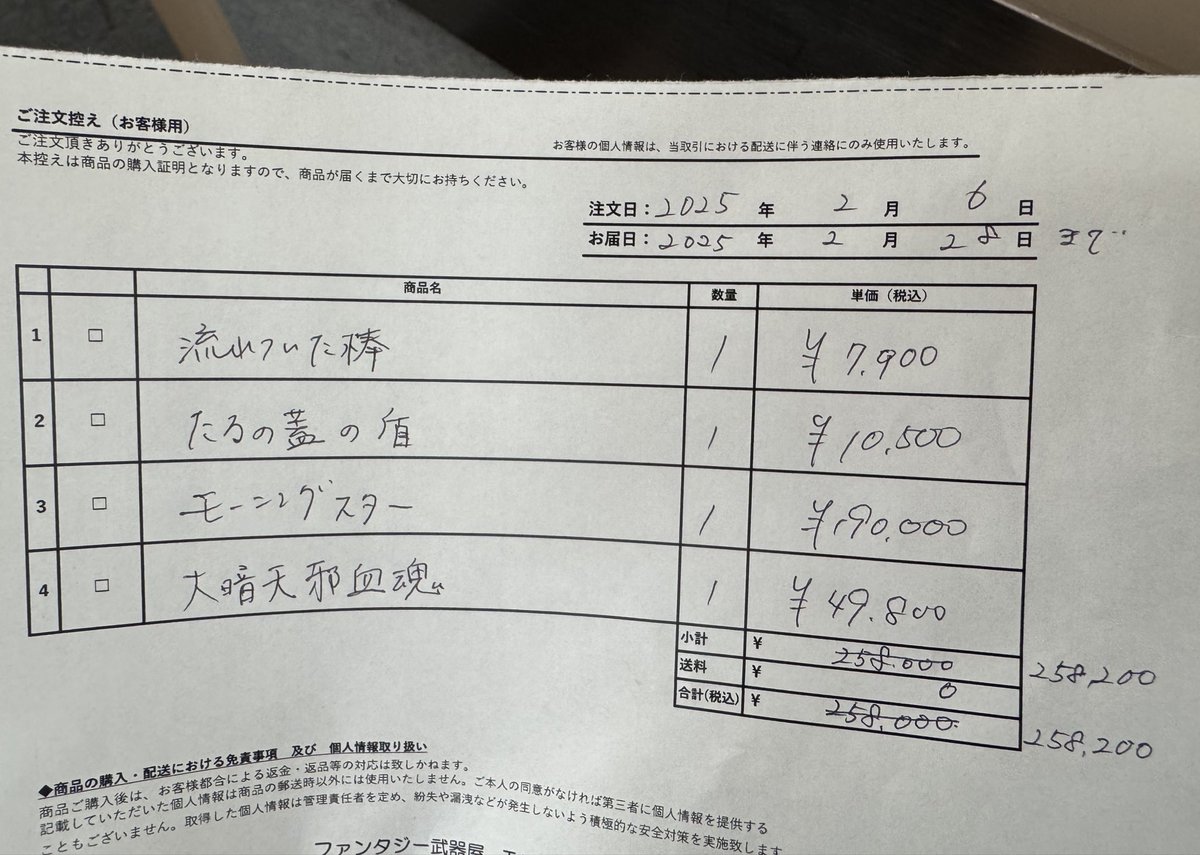 ご注文控え（お客様用）
ご注文頂きありがとうございます。
お客様の個人情報は、当取引における配送に伴う連絡にのみ使用いたします。
本控えは商品の購入証明となりますので、商品が届くまで大切にお持ちください。
注文日：2025 年 2 月 6 日
お届日：2025 年 2 月 28 日 まで
商品名 数量 単価（税込）
1 □ 流れていた棒 1 ¥7.900
2 □ たるの蓋の盾 1 ¥10.500
3 □ モーニングスター 1 ¥190.000
4 □ 大暗天邪血魂 1 ¥49.800
小計 ¥ 258.000 258,200
送料 ¥ 0
合計(税込) ¥ 258,000 258,200
◆商品の購入・配送における免責事項 及び 個人情報取り扱い
商品ご購入後は、お客様都合による返金・返品等の対応は致しかねます。
記載していただいた個人情報は商品の郵送時以外には使用いたしません。ご本人の同意がなければ第三者に個人情報を提供する
こともございません。取得した個人情報は管理責任者を定め、紛失や漏洩などが発生しないよう積極的な安全対策を実施致します
ファンタジー武器屋